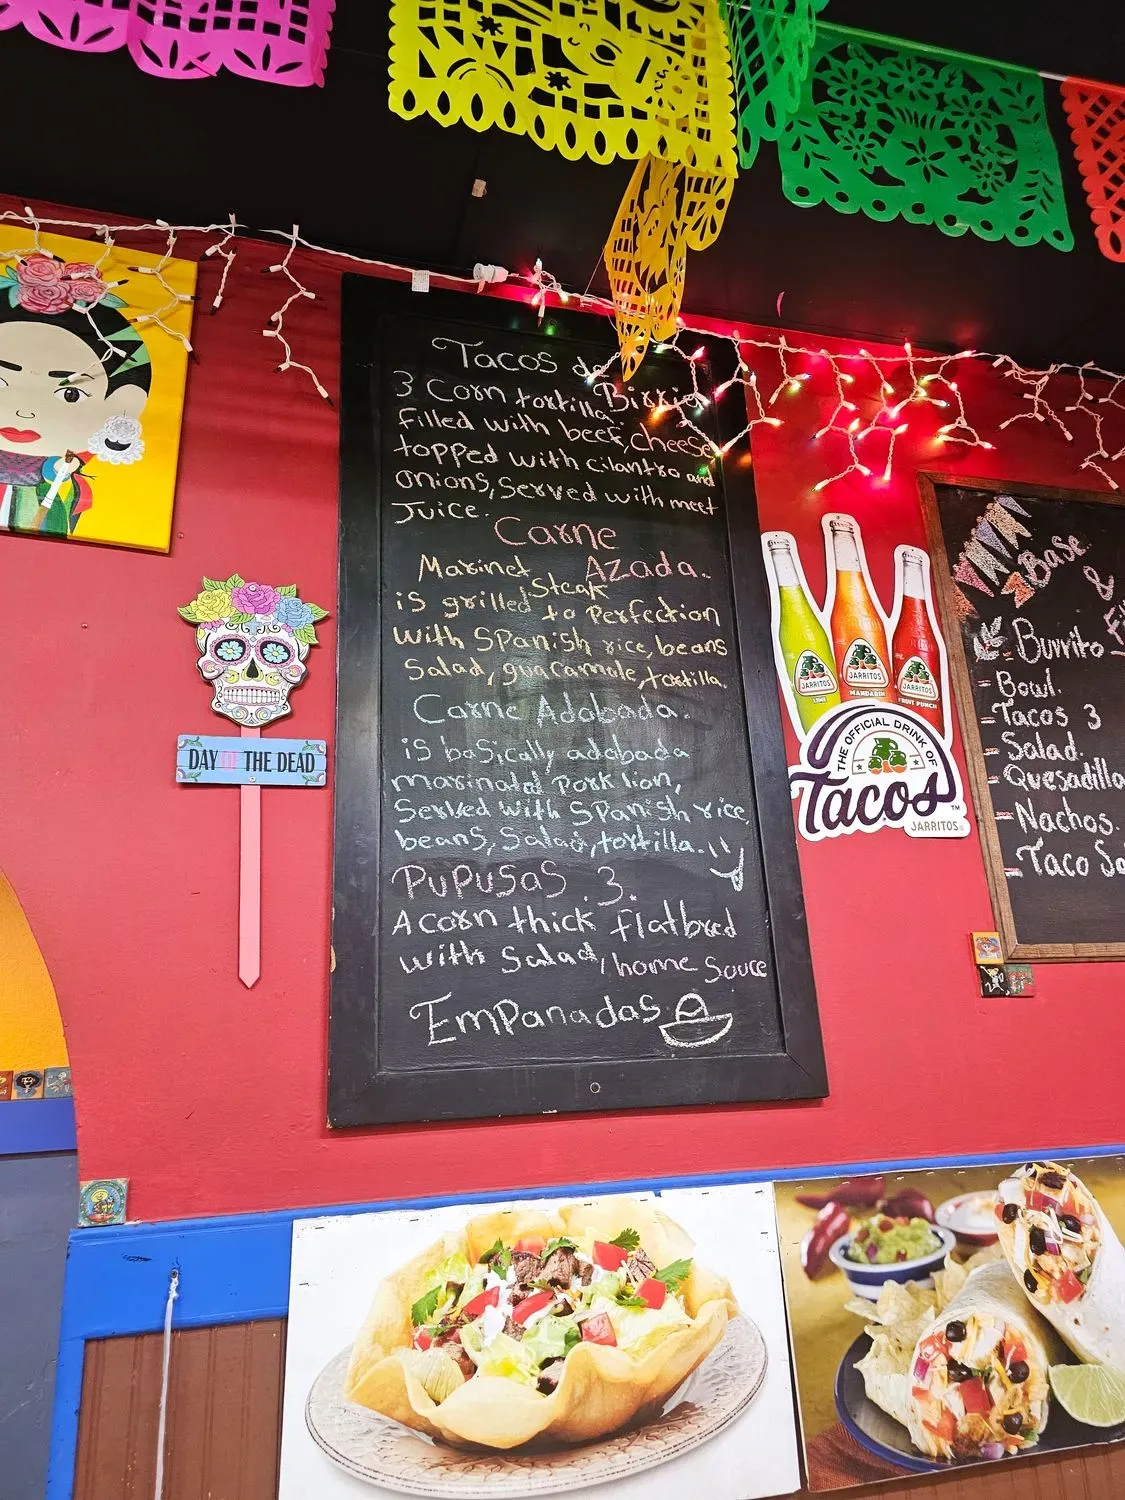 Tacos de
Birria
3 Corn tortilla
filled with beef, cheese
topped with cilantro and
onions, served with meet
Juice.
Carne
Azada.
Marinet Steak
is grilled to Perfection
with Spanish rice, beans
Salad, guacamole, tortilla.
Carne Adobada.
is basically adobada
marinated Pork lion,
Served with Spanish rice,
beans, Salad, tortilla.
PUPUSAS .3.
A corn thick flatbred
with Salad, home Souce
EmPanadas
DAY OF THE DEAD
JARRITOS
LIME
JARRITOS
MANDARIN
JARRITOS
FRUIT PUNCH
THE OFFICIAL DRINK OF
Tacos™
JARRITOS®
Base
&
- Burrito
- Bowl.
- Tacos 3
- Salad.
- Quesadilla
- Nachos.
- Taco Sa